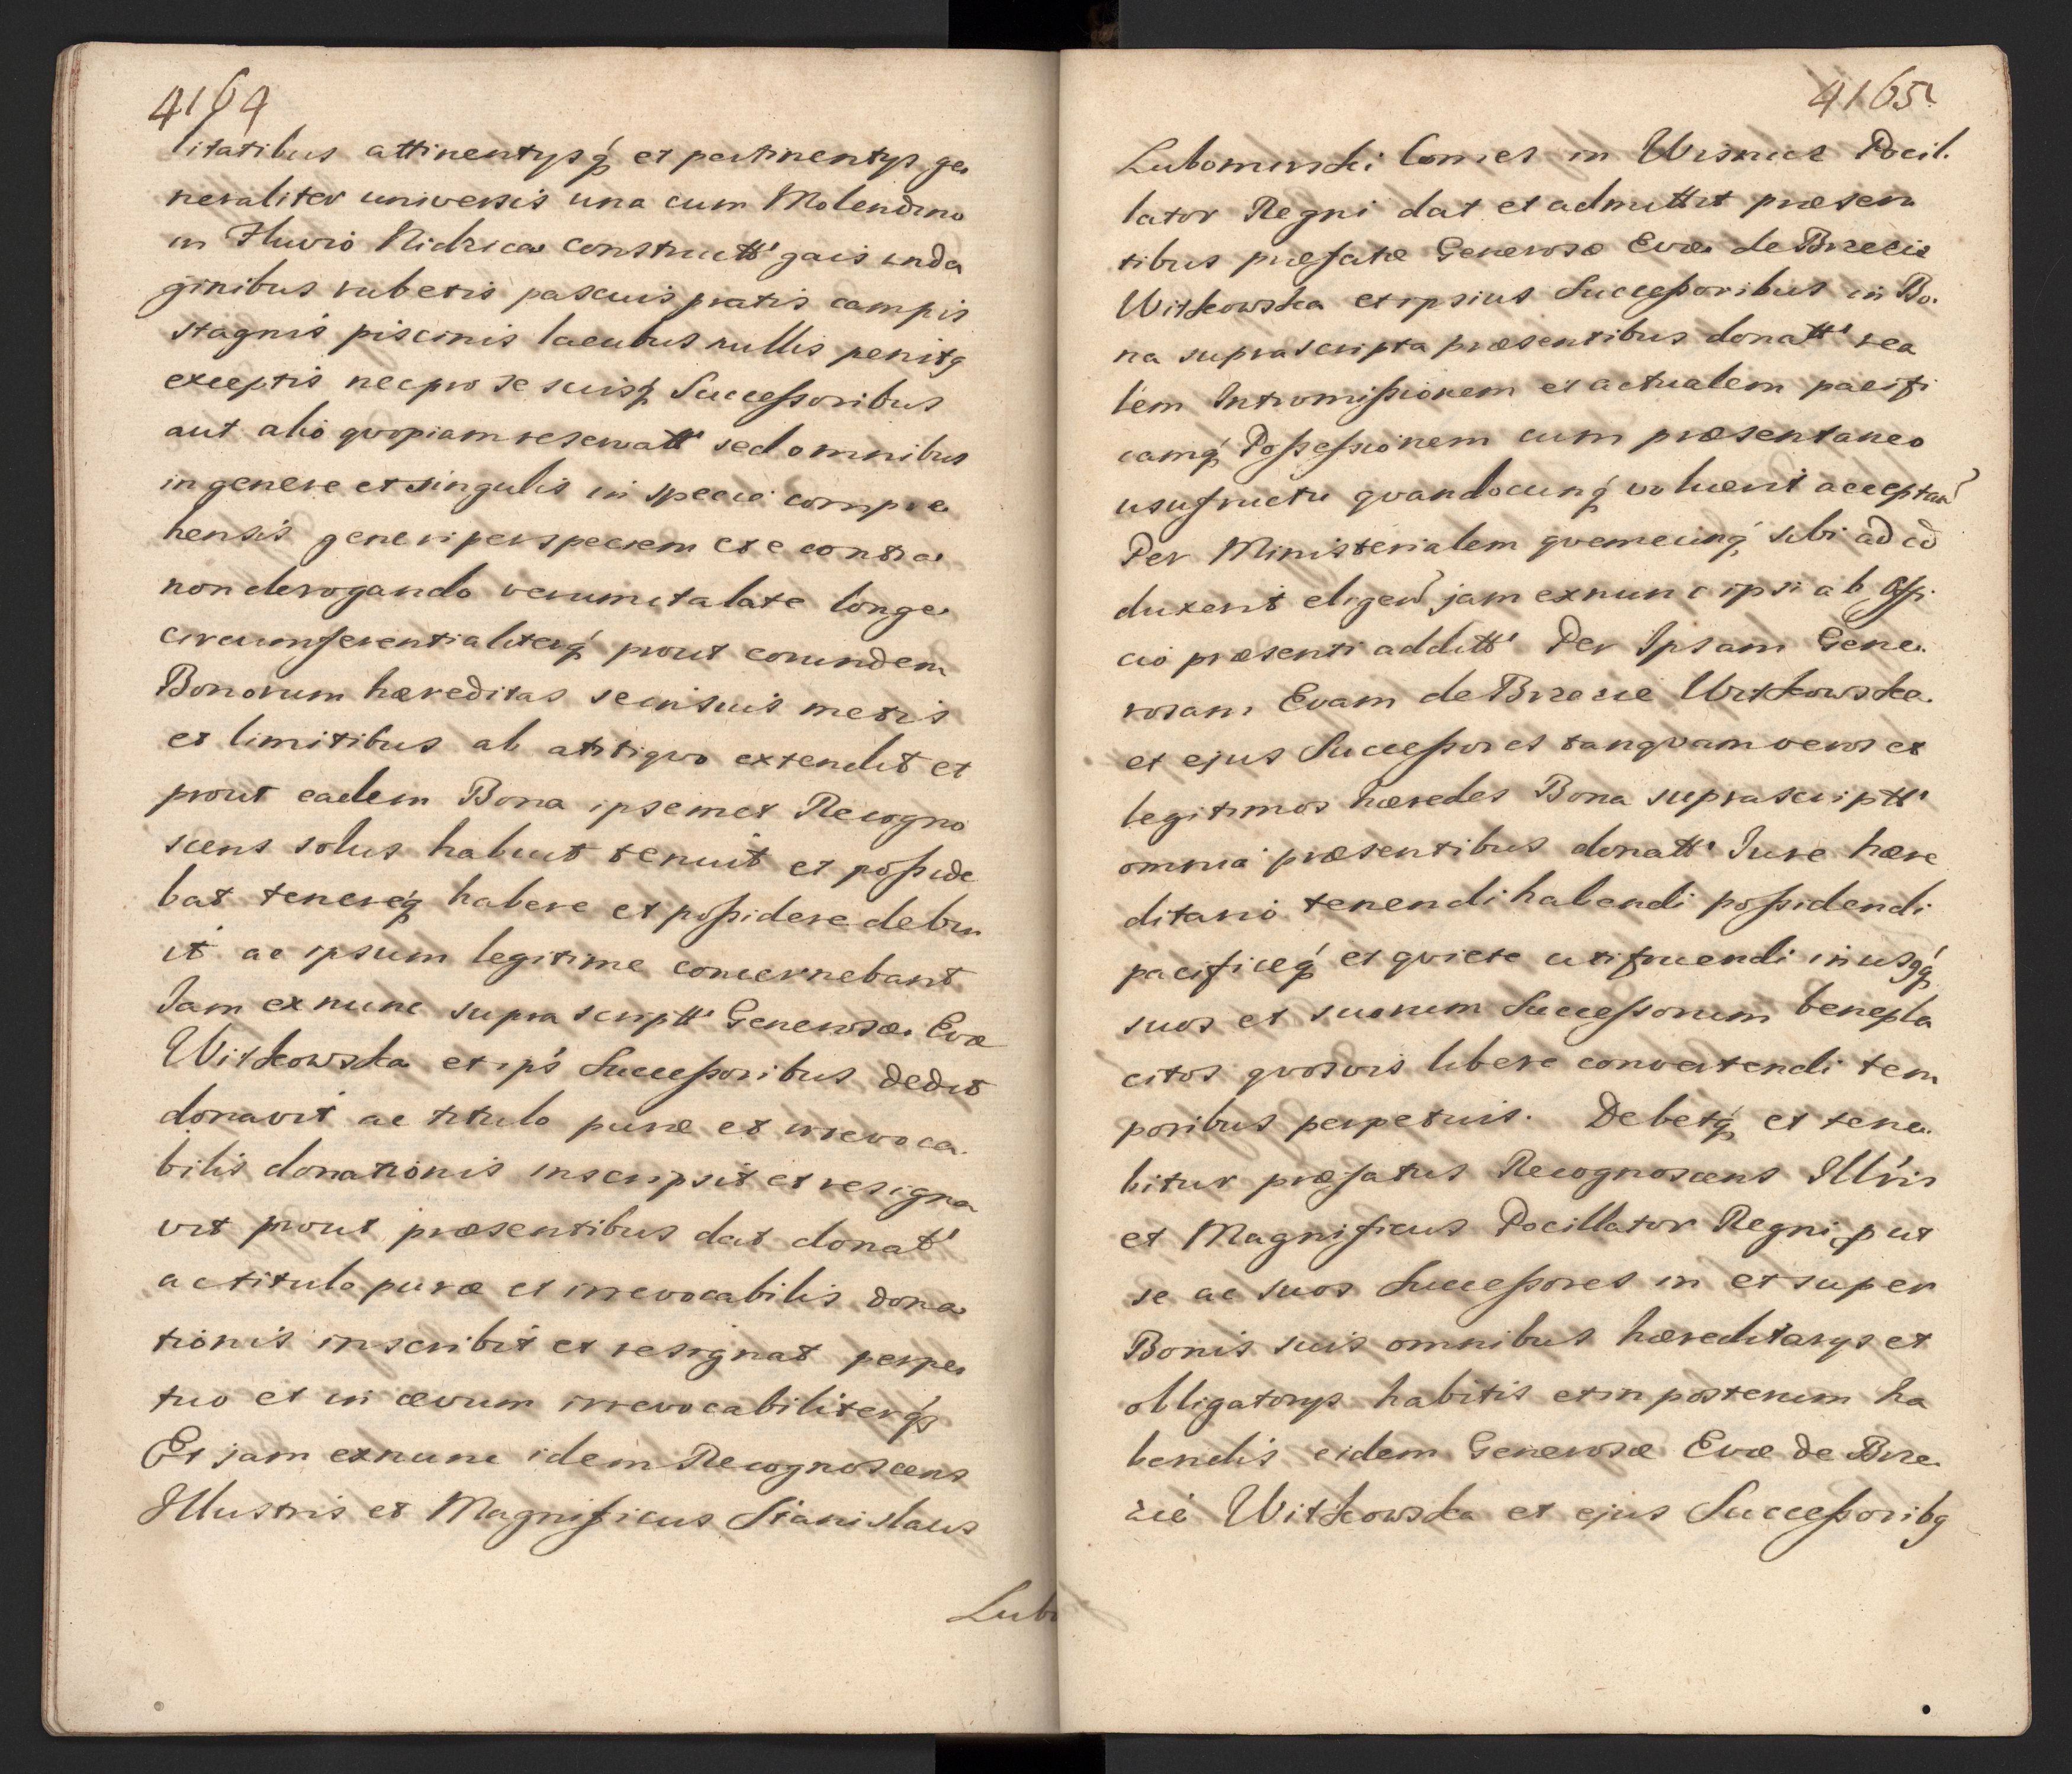 4164
litatibus attinentysq́ et pertinentys ge
neraliter universis una cum Molendino
in Fluvio Nidzica constructt' gais inda
ginibus rubetis pascuis pratis campis
stagnis piscinis lacubus nullis penitq
exceptis nec pro se suisq́ Successoribus
aut alio qvopiam reservatt' sed omnibus
in genere et singulis in specie compre
hensis generi per speciem et e contra
non derogando verum ita late longe
circumferentialiterq́ prout eorundem
Bonorum hæreditas se in suis metis
et limitibus ab antiqvo extendit et
prout eadem Bona ipsemet Recogno
scens solus habuit tenuit et posside
bat tenereq́ habere et possidere debu
it ac ipsum legitime concernebant
Jam ex nunc supra scriptt' Generosæ Evæ
Witkowska et ips Successoribus dedit
donavit ac titulo puræ et irrevoca
bilis donationis inscripsit et resigna
vit prout præsentibus dat donat'
ac titulo puræ et irrevocabilis dona
tionis inscribit et resignat perpe
tuo et in ævum irrevocabiliterq́
Et jam exnunc idem Recognoscens
Illustris et Magnificus Stanislaus
Lubo
4165
Lubomirski Comes in Wisnicz Pocil.
lator Regni dat et admittit præsen
tibus præfatæ Generosæ Evæ de Brzezie
Witkowska et ipsius Successoribus in Bo.
na suprascripta præsentibus donatt' rea
lem Intromissionem et actualem pacifi
camq́ Possessionem cum præsentaneo
usufructu qvandocunq́ voluerit acceptan
Per Ministerialem qvemcunq́ sibi ad id
duxerit eligen jam exnunc ipsi ab Offi
cio præsenti additt' Per Ipsam Gene.
rosam Evam de Brzezie Witkowska
et ejus Successores tanqvam veros et
legitimos hæredes Bona suprascriptt'
omnia præsentibus donatt' Jure hære
ditario tenendi habendi possidendi
pacificeq́ et qviete utifruendi in usqq́
suos et suorum Successorum benepla
citos qvosvis libere convertendi tem
poribus perpetuis. Debetq́ et tene.
bitur præfatus Recognoscens Illris
et Magnificus Pocillator Regni put
se ac suos Successores in et super
Bonis suis omnibus hæreditarys et
obligatorys habitis et in posterum ha
bendis eidem Generosæ Evæ de Brze.
zie Witkowska et ejus Successoribq